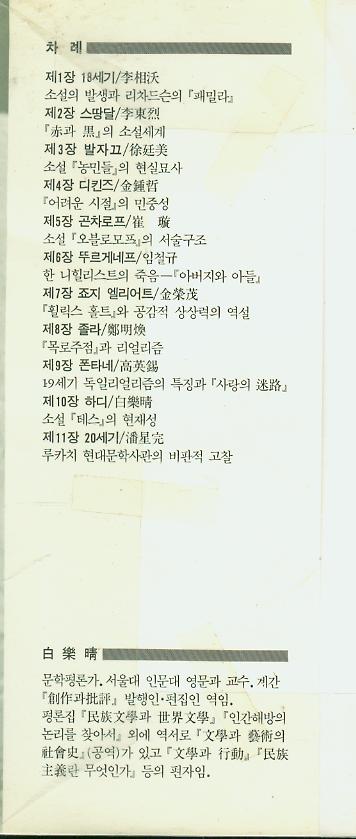 차 례
제1장 18세기/李相沃
소설의 발생과 리차드슨의 『패밀라』
제2장 스땅달/李東烈
『赤과 黒』의 소설세계
제3장 발자끄/徐廷美
소설 『농민들』의 현실묘사
제4장 디킨즈/金鍾哲
『어려운 시절』의 민중성
제5장 곤차로프/崔 璇
소설 『오블로모프』의 서술구조
제6장 뚜르게네프/임철규
한 니힐리스트의 죽음—『아버지와 아들』
제7장 죠지 엘리어트/金榮茂
『휠릭스 홀트』와 공감적 상상력의 역설
제8장 졸라/鄭明煥
『목로주점』과 리얼리즘
제9장 폰타네/高英錫
19세기 독일리얼리즘의 특징과 『사랑의 迷路』
제10장 하디/白樂晴
소설 『테스』의 현재성
제11장 20세기/潘星完
루카치 현대문학사관의 비판적 고찰
白 樂 晴
문학평론가. 서울대 인문대 영문과 교수. 계간
『創作과批評』 발행인·편집인 역임.
평론집 『民族文學과 世界文學』 『인간해방의
논리를 찾아서』 외에 역서로 『文學과 藝術의
社會史』(공역)가 있고 『文學과 行動』 『民族
主義란 무엇인가』 등의 편자임.